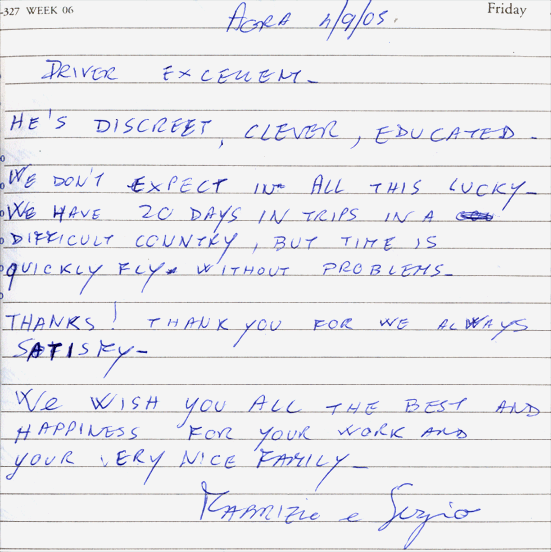 -327 WEEK 06
Friday
AGRA 4/9/05.
DRIVER EXCELLENT-
HE'S DISCREET, CLEVER, EDUCATED -
WE DON'T EXPECT IN ALL THIS LUCKY-
WE HAVE 20 DAYS IN TRIPS IN A
DIFFICULT COUNTRY, BUT TIME IS
QUICKLY FLY. WITHOUT PROBLEMS-
THANKS! THANK YOU FOR WE ALWAYS
SATISFY-
We WISH YOU ALL THE BEST AND
HAPPINESS FOR YOUR WORK AND
YOUR VERY NICE FAMILY-
FABRIZIO e Sergio